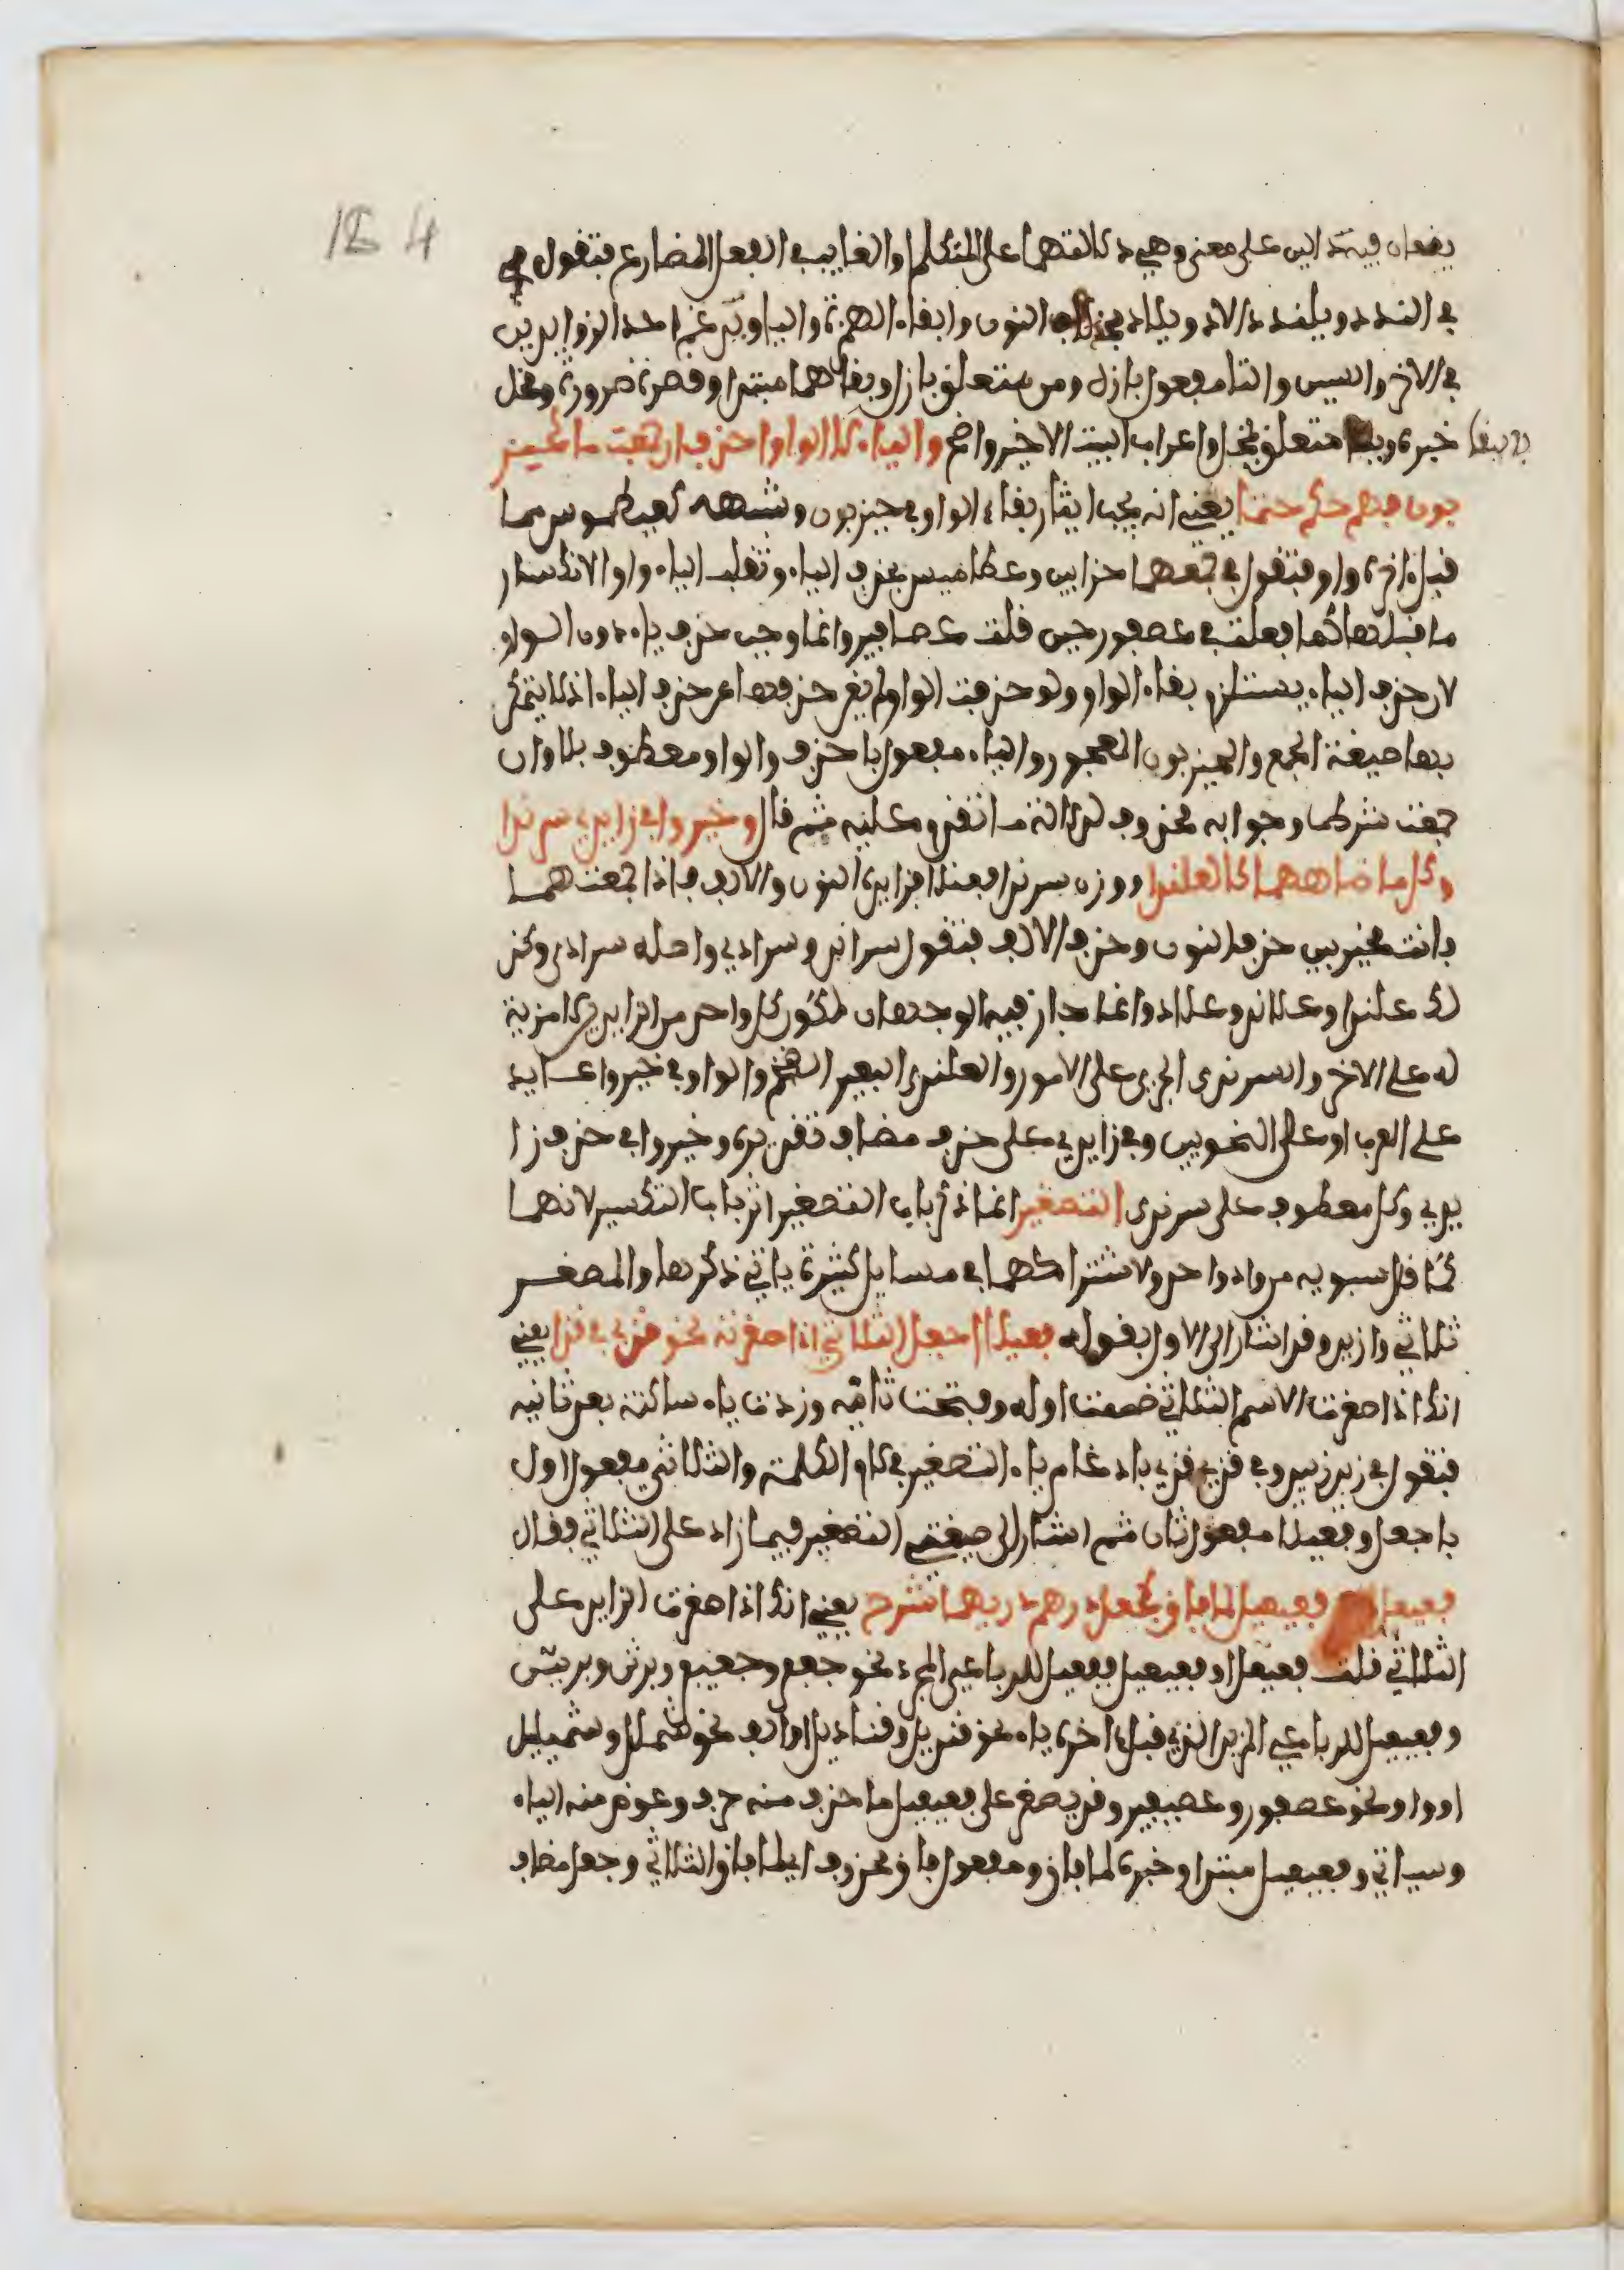 184
يقعان فيه دالين على معنى وهي دلالتهما على المتكلم والغايب في الفعل المضارع فتقول في
في النددد ويلندد الاد ويلاد بحذف النون وابقاء الهمزة والياء احد الزوايد
في الاخر والسين والتا مفعول بازل ومن متعلق بازل وبقاهما مبتدا وقصره ضرورة ومخل
خبره وببقا متعلق بمخل واعراب البيت الاخير واضح والياء لا الواو احذف ان جمعت ما كحيز
بون فهو حكم حتما يعني انه يجب ايثار بقاء الواو في حيزبون وشبهه كعيطموس مما
قبل اخره واو فتقول في جمعهما حزابين وعطاميس بحذف الياء وتقلب الياء واوا لانكسار
ما قبلها كما فعلت في عصفور حين قلت عصافير وانما وجب حذف ياء دون الواو
لان حذف الياء يستلزم بقاء الواو ولو حذفت الواو لم يغن حذفها عن حذف الياء اذ لا يتمكن
بها صيغة الجمع والحيزبون العجوز والياء مفعول باحذف والواو معطوف بلا وان
جمعت شرط وجوابه محذوف لدلالة ما تقدم عليه ثم قال وخيروا في زايدي سرندا
وكل ما ضاهاهما كالعلندا ووزن سرندا فعنلا فزايداه النون والالف فاذا جمعتهما
فانت مخير بين حذف النون وحذف الالف فتقول سراند وسرادي واصله سرادى وكذ
لك علندا وعلاند وعلاد وانما جاز فيه الوجهان لكون كل واحد من الزايدين لا مزية
له على الاخر والسرندى الجري على الامور والعلندى البعير الضخم والواو في خيروا عايد
على العرب او على النحويين وفي زايدي على حذف مضاف تقديره وخيروا في حذف زا
يدي وكل معطوف على سرندى التصغير انما ذكر باب التصغير اثر باب التكسير لانهما
كما قال سيبويه من واد واحد ولاشتراكهما في مسايل كثيرة ياتي ذكرها والمصغر
ثلاثي وازيد وقد اشار الى الاول بقوله فعيلا اجعل الثلاثي اذا صغرته نحو قذي في قذا يعني
انك اذا صغرت الاسم الثلاثي ضممت اوله وفتحت ثانيه وزدت ياء ساكنة بعد ثانيه
فتقول في زيد زييد وفي قذي قذي بادغام ياء التصغير في لام الكلمة والثلاثي مفعول اول
باجعل وفعيلا مفعول ثان ثم اشار الى صيغتي التصغير فيما زاد على الثلاثي فقال
فعيعل فعيعيل لما فاق كجعل درهم دريهما تشرح يعني انك اذا صغرت الزايد على
الثلاثي قلت فعيعل او فعيعيل ففعيعل للرباعي المجرد نحو جعفر وجعيفر وبرثن وبريثن
وفعيعيل للرباعي المزيد الذي قبل اخره ياء نحو قنديل وقناديل او الف نحو شملال وشميليل
او واو نحو عصفور وعصيفير وقد يصغر على فعيعيل ما حذف منه حرف وعوض منه الياء
وسياتي وفعيعل مبتدا وخبره لما فاق ومفعول فاق محذوف اي لما فاق الثلاثي وجعل مضاف